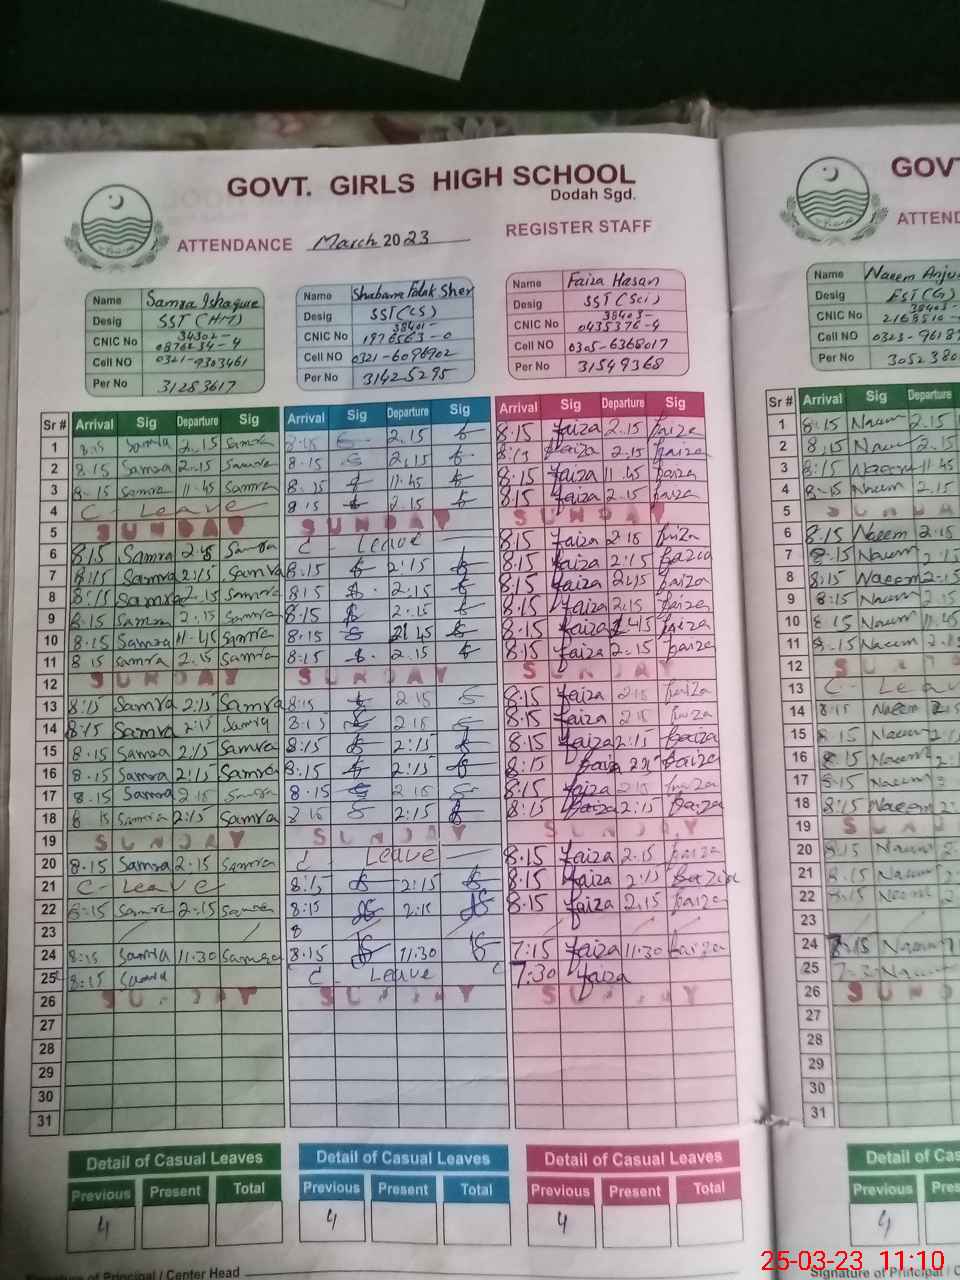 GOVT. GIRLS HIGH SCHOOL
Dodah Sgd.
ATTENDANCE March 2023 REGISTER STAFF
Name Samra Ishaque
Desig SST (HM)
CNIC No 34302-
0876234-4
Cell NO 0321-9303461
Per No 31283617
Name Shabana Falak Sher
Desig SST (CS)
CNIC No 38401-
1976563-0
Cell NO 0321-6096902
Per No 31425295
Name Faiza Hasan
Desig SST (Sci)
CNIC No 38403-
0435376-4
Cell NO 0305-6368017
Per No 31549368
Sr # Arrival Sig Departure Sig Arrival Sig Departure Sig Arrival Sig Departure Sig
1 8:15 Samra 2.15 Samra 2.15 8.15 faiza 2.15 faiza
2 8.15 Samra 2.15 Samra 8.15 2.15 faiza 2.15 faiza
3 8.15 Samra 11.45 Samra 8.15 11.45 8.15 faiza 11.45 faiza
4 C- Leave 8.15 2.15 8.15 faiza 2.15 faiza
5 SUNDAY SUNDAY SUNDAY
6 8.15 Samra 2.15 Samra C Leave 8.15 faiza 2.15 faiza
7 8:15 Samra 2:15 Samra 8.15 2:15 8.15 faiza 2:15 faiza
8 8:15 Samra 2.15 Samra 8.15 2.15 8.15 faiza 2.15 faiza
9 8.15 Samra 2.15 Samra 8.15 2.15 8.15 faiza 2.15 faiza
10 8.15 Samra 11.45 Samra 8.15 8.15 faiza faiza
11 8.15 Samra 2.15 Samra 8.15 2.15 8.15 faiza 2.15 faiza
12 SUNDAY SUNDAY SUNDAY
13 8:15 Samra 2:15 Samra 8:15 2.15 8.15 faiza 2.15 faiza
14 8:15 Samra 2:15 Samra 8:15 2.15 8.15 faiza 2.15 faiza
15 8.15 Samra 2:15 Samra 8:15 2:15 8.15 faiza 2:15 faiza
16 8.15 Samra 2:15 Samra 8:15 2:15 8:15 faiza faiza
17 8.15 Samra 2.15 Samra 8.15 2.15 8.15 faiza 2.15 faiza
18 8 15 Samra 2:15 Samra 2:15 8:15 faiza 2:15 faiza
19 SUNDAY SUNDAY SUNDAY
20 8.15 Samra 2.15 Samra C Leave 8.15 faiza 2.15 faiza
21 C- Leave 8:15 2:15 8.15 faiza 2:15 faiza
22 8:15 Samra 2:15 Samra 8:15 2:15 8.15 faiza 2.15 faiza
23 8
24 8:15 Samra 11.30 Samra 8.15 11.30 7:15 faiza 11.30 faiza
25 8:15 Samra C Leave 7:30 faiza
26 SUNDAY SUNDAY SUNDAY
27
28
29
30
31
Detail of Casual Leaves Detail of Casual Leaves Detail of Casual Leaves
Previous Present Total Previous Present Total Previous Present Total
4 4 4
Signature of Principal / Center Head
GOVT
ATTEND
Name Naeem Anju
Desig EST (G)
CNIC No 38403-
Cell NO 0323-9618
Per No 305238
Sr # Arrival Sig Departure
1 8.15 Naeem 2.15
2 8.15 Naeem 2.15
3 8:15 Naeem 11.45
4 8.15 Naeem 2.15
5 SUND
6 8.15 Naeem 2.15
7 8.15 Naeem 2.15
8 8:15 Naeem 2.15
9 8:15 Naeem 2.15
10 8 15 Naeem 11.45
11 8.15 Naeem
12 SU
13 C- Leav
14 8:15 Naeem 2.15
15 8.15 Naeem
16 8 15 Naeem
17 8:15 Naeem
18 8:15 Naeem
19 SU
20 8.15 Naeem
21 8.15 Naeem
22 8.15 Naeem
23
24 7:15 Naeem
25 7:30 Naeem
26 SUN
27
28
29
30
31
Detail of Cas
Previous Pres
4
Signature of Principal / C
25-03-23 11:10